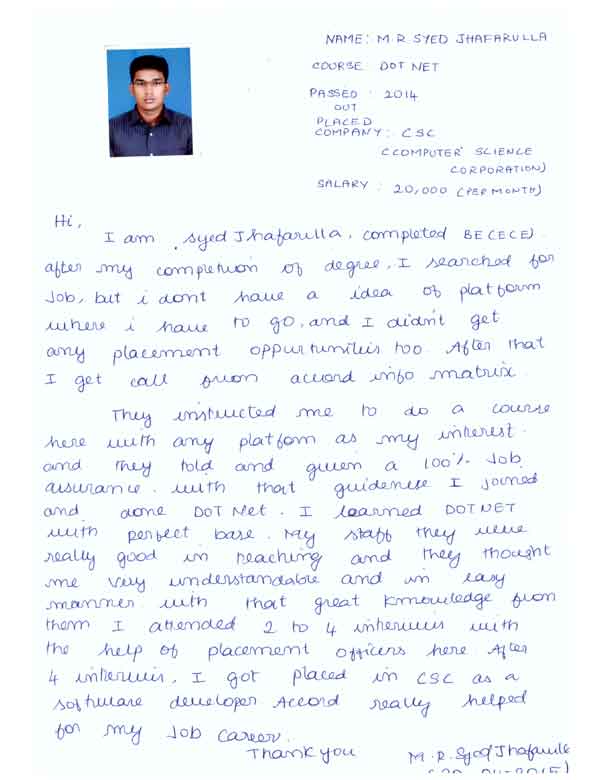 NAME: M.R SYED JHAFARULLA
COURSE: DOT NET
PASSED : 2014
OUT
PLACED
COMPANY: CSC
(COMPUTER SCIENCE
CORPORATION)
SALARY : 20,000 (PER MONTH)
Hi,
I am syed Jhafarulla, completed BE(ECE).
after my completion of degree, I searched for
Job, but i dont have a idea of platform
where i have to go, and I didn't get
any placement oppurtunities too. After that
I get call from accord info matrix.
They instructed me to do a course
here with any platfom as my interest.
and they told and given a 100% Job
assurance. with that guidence I joined
and done DOT Net. I learned DOT NET
with perfect base. My staff they were
really good in teaching and they thought
me very understandable and in easy
manner with that great knowledge from
them I attended 2 to 4 interviews with
the help of placement officers here After
4 interviews, I got placed in CSC as a
software developer Accord really helped
for my Job career.
Thank you
M.R.Syed Jhafarulla